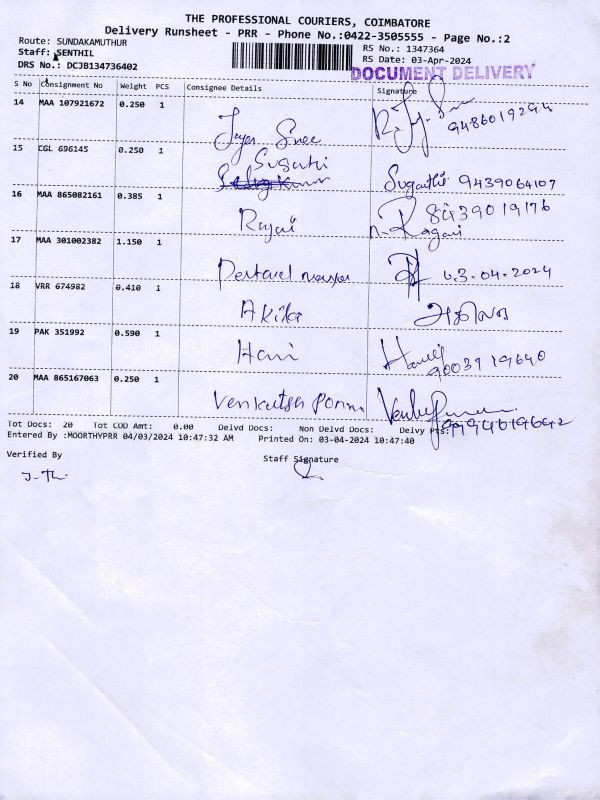 THE PROFESSIONAL COURIERS, COIMBATORE
Delivery Runsheet - PRR - Phone No.:0422-3505555 - Page No.:2
Route: SUNDAKAMUTHUR
RS No.: 1347364
Staff: SENTHIL
RS Date: 03-Apr-2024
DRS No.: DCJB134736402
DOCUMENT DELIVERY
S No Consignment No Weight PCS Consignee Details Signature
14 MAA 107921672 0.250 1
Jaya Sree
9486019294
15 CGL 696145 0.250 1
Sugathi
Suganthi 9439064107
16 MAA 865082161 0.385 1
Rajari
n. Ragavi
17 MAA 301002382 1.150 1
03.04.2024
18 VRR 674982 0.410 1
Akila
அகிலா
19 PAK 351992 0.590 1
Hani
9003919640
20 MAA 865167063 0.250 1
Venkatesh
Tot Docs: 20 Tot COD Amt: 0.00 Delvd Docs: Non Delvd Docs: Delvy Pts:
Entered By :MOORTHYPRR 04/03/2024 10:47:32 AM Printed On: 03-04-2024 10:47:40
Verified By
Staff Signature